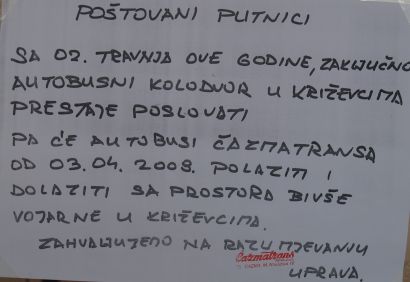 POŠTOVANI PUTNICI
SA 02. TRAVNJA OVE GODINE, ZAKLJUČNO
AUTOBUSNI KOLODVOR U KRIŽEVCIMA
PRESTAJE POSLOVATI
PA ĆE AUTOBUSI ČAZMATRANSA
OD 03.04. 2008. POLAZITI I
DOLAZITI SA PROSTORA BIVŠE
VOJARNE U KRIŽEVCIMA.
ZAHVALJUJEMO NA RAZUMIJEVANJU
Čazmatrans
UPRAVA.